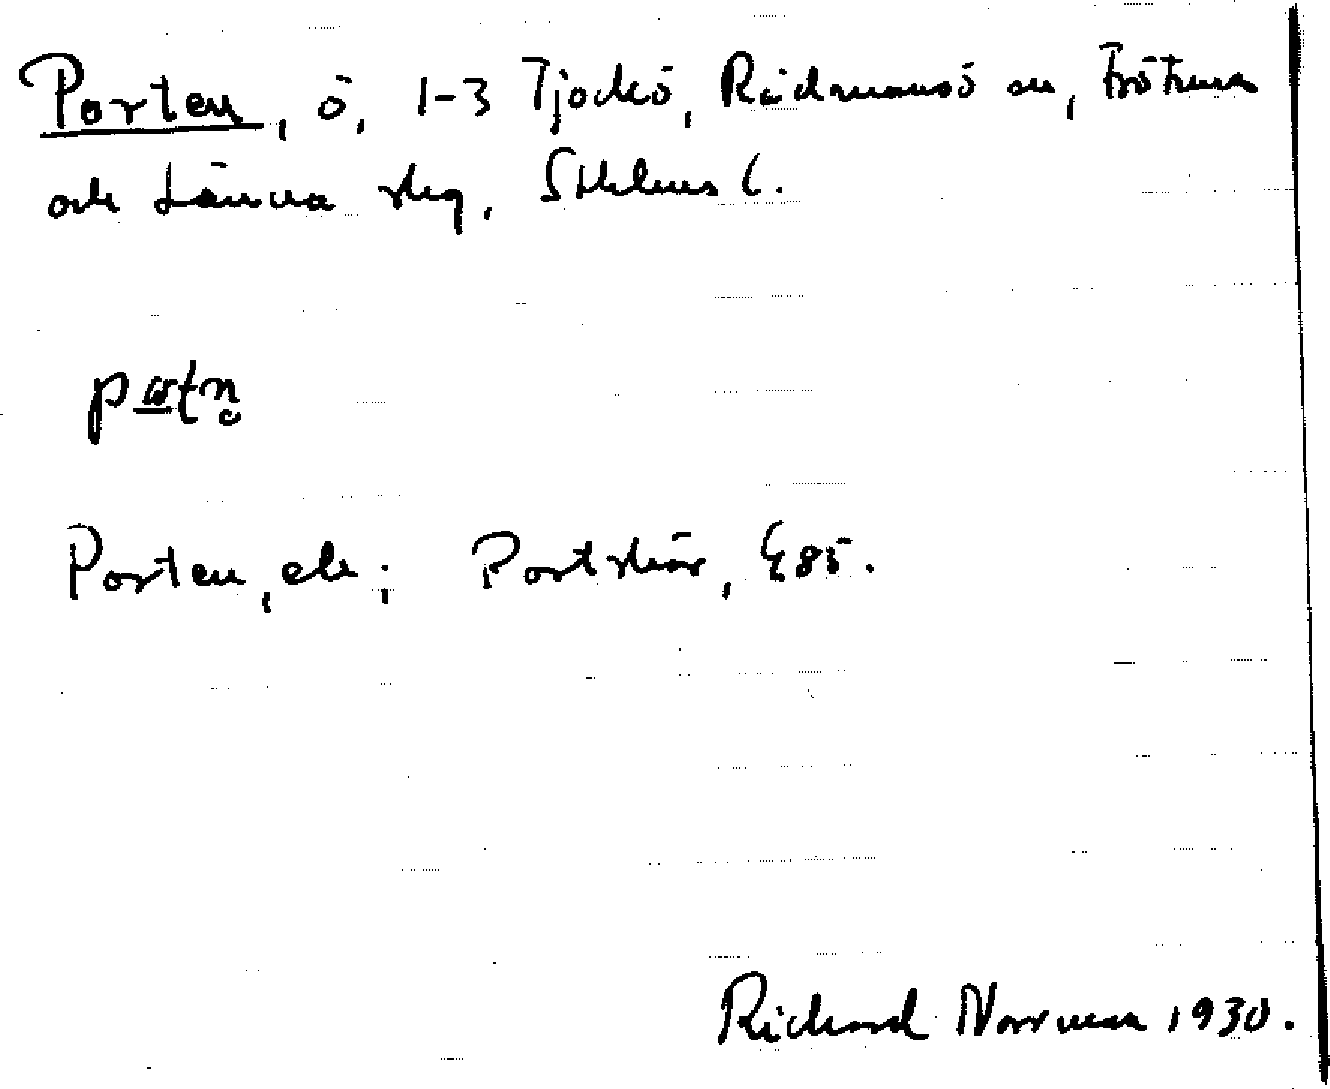 Porten, ö, 1-3 Tjockö, Rådmansö sn, Frötuna
och Länna skg, Sthlms l.
portn̥
Porten, ek; Portskär, E 85.
Richard Norrman 1930.